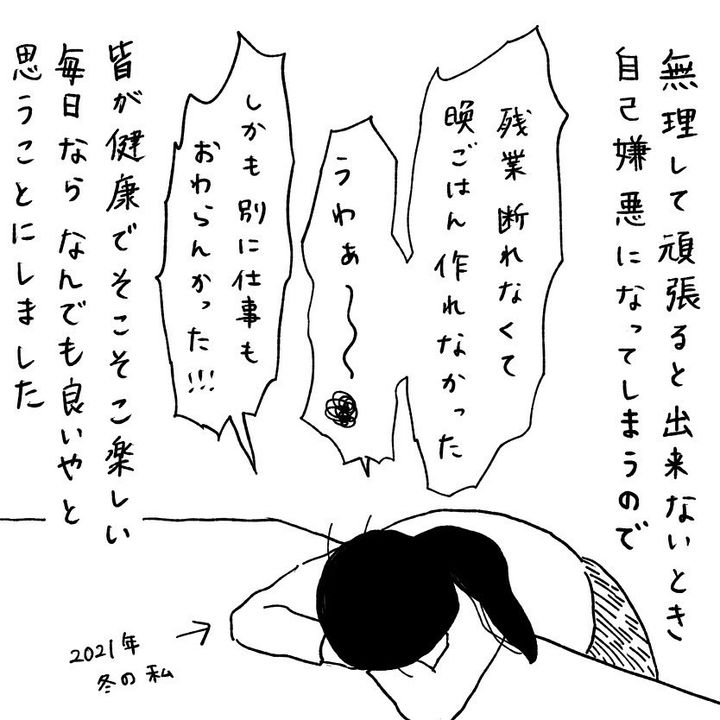 無理して頑張ると出来ないとき
自己嫌悪になってしまうので
残業断れなくて
晩ごはん作れなかった
うわぁ〜〜
しかも別に仕事も
おわらんかった!!!
皆が健康でそこそこ楽しい
毎日ならなんでも良いやと
思うことにしました
2021年
冬の私